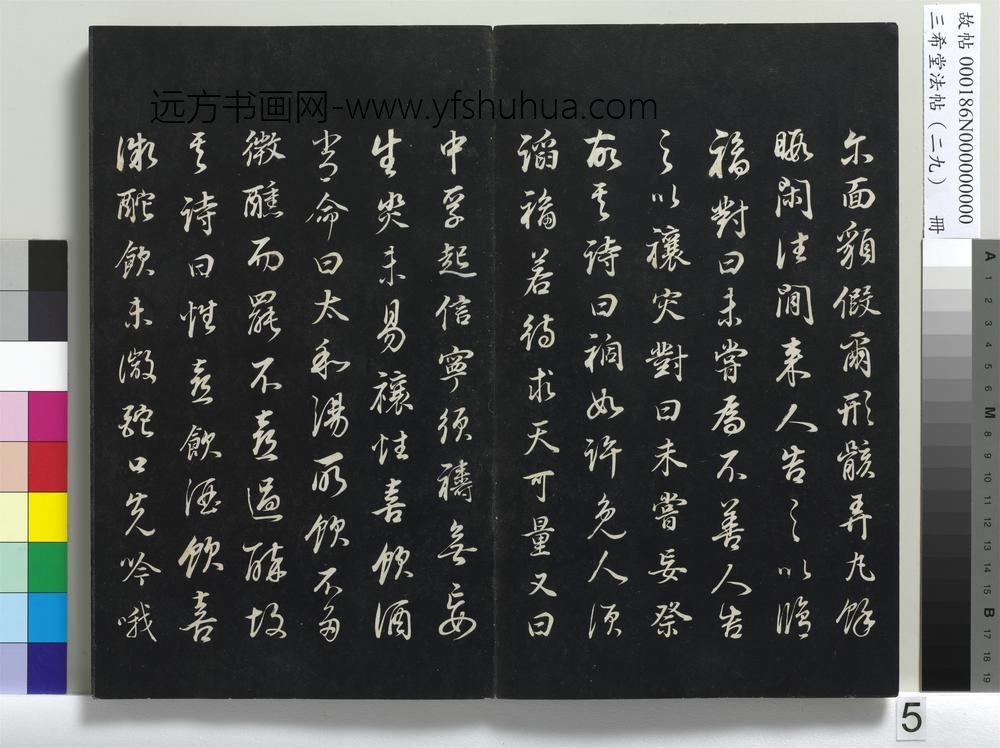 尔面貌假爾形骸弄丸餘
暇閑往閒来人告之以脩
福對曰未嘗為不善人告
之以禳灾對曰未嘗妄祭
故其詩曰禍如許免人須
謟福若待求天可量又曰
中孚起信寧須禱無妄
生灾未易禳性喜飲酒
嘗命曰太和湯所飲不多
微醺而罷不喜過醉故
其詩曰性喜飲酒飲喜
微酡飲未微酡口先吟哦
远方书画网-www.yfshuhua.com
故帖 000186N000000000
三希堂法帖(二九) 冊
A 1 2 3 4 5 6 M 8 9 10 11 12 13 14 15 B 17 18 19
5